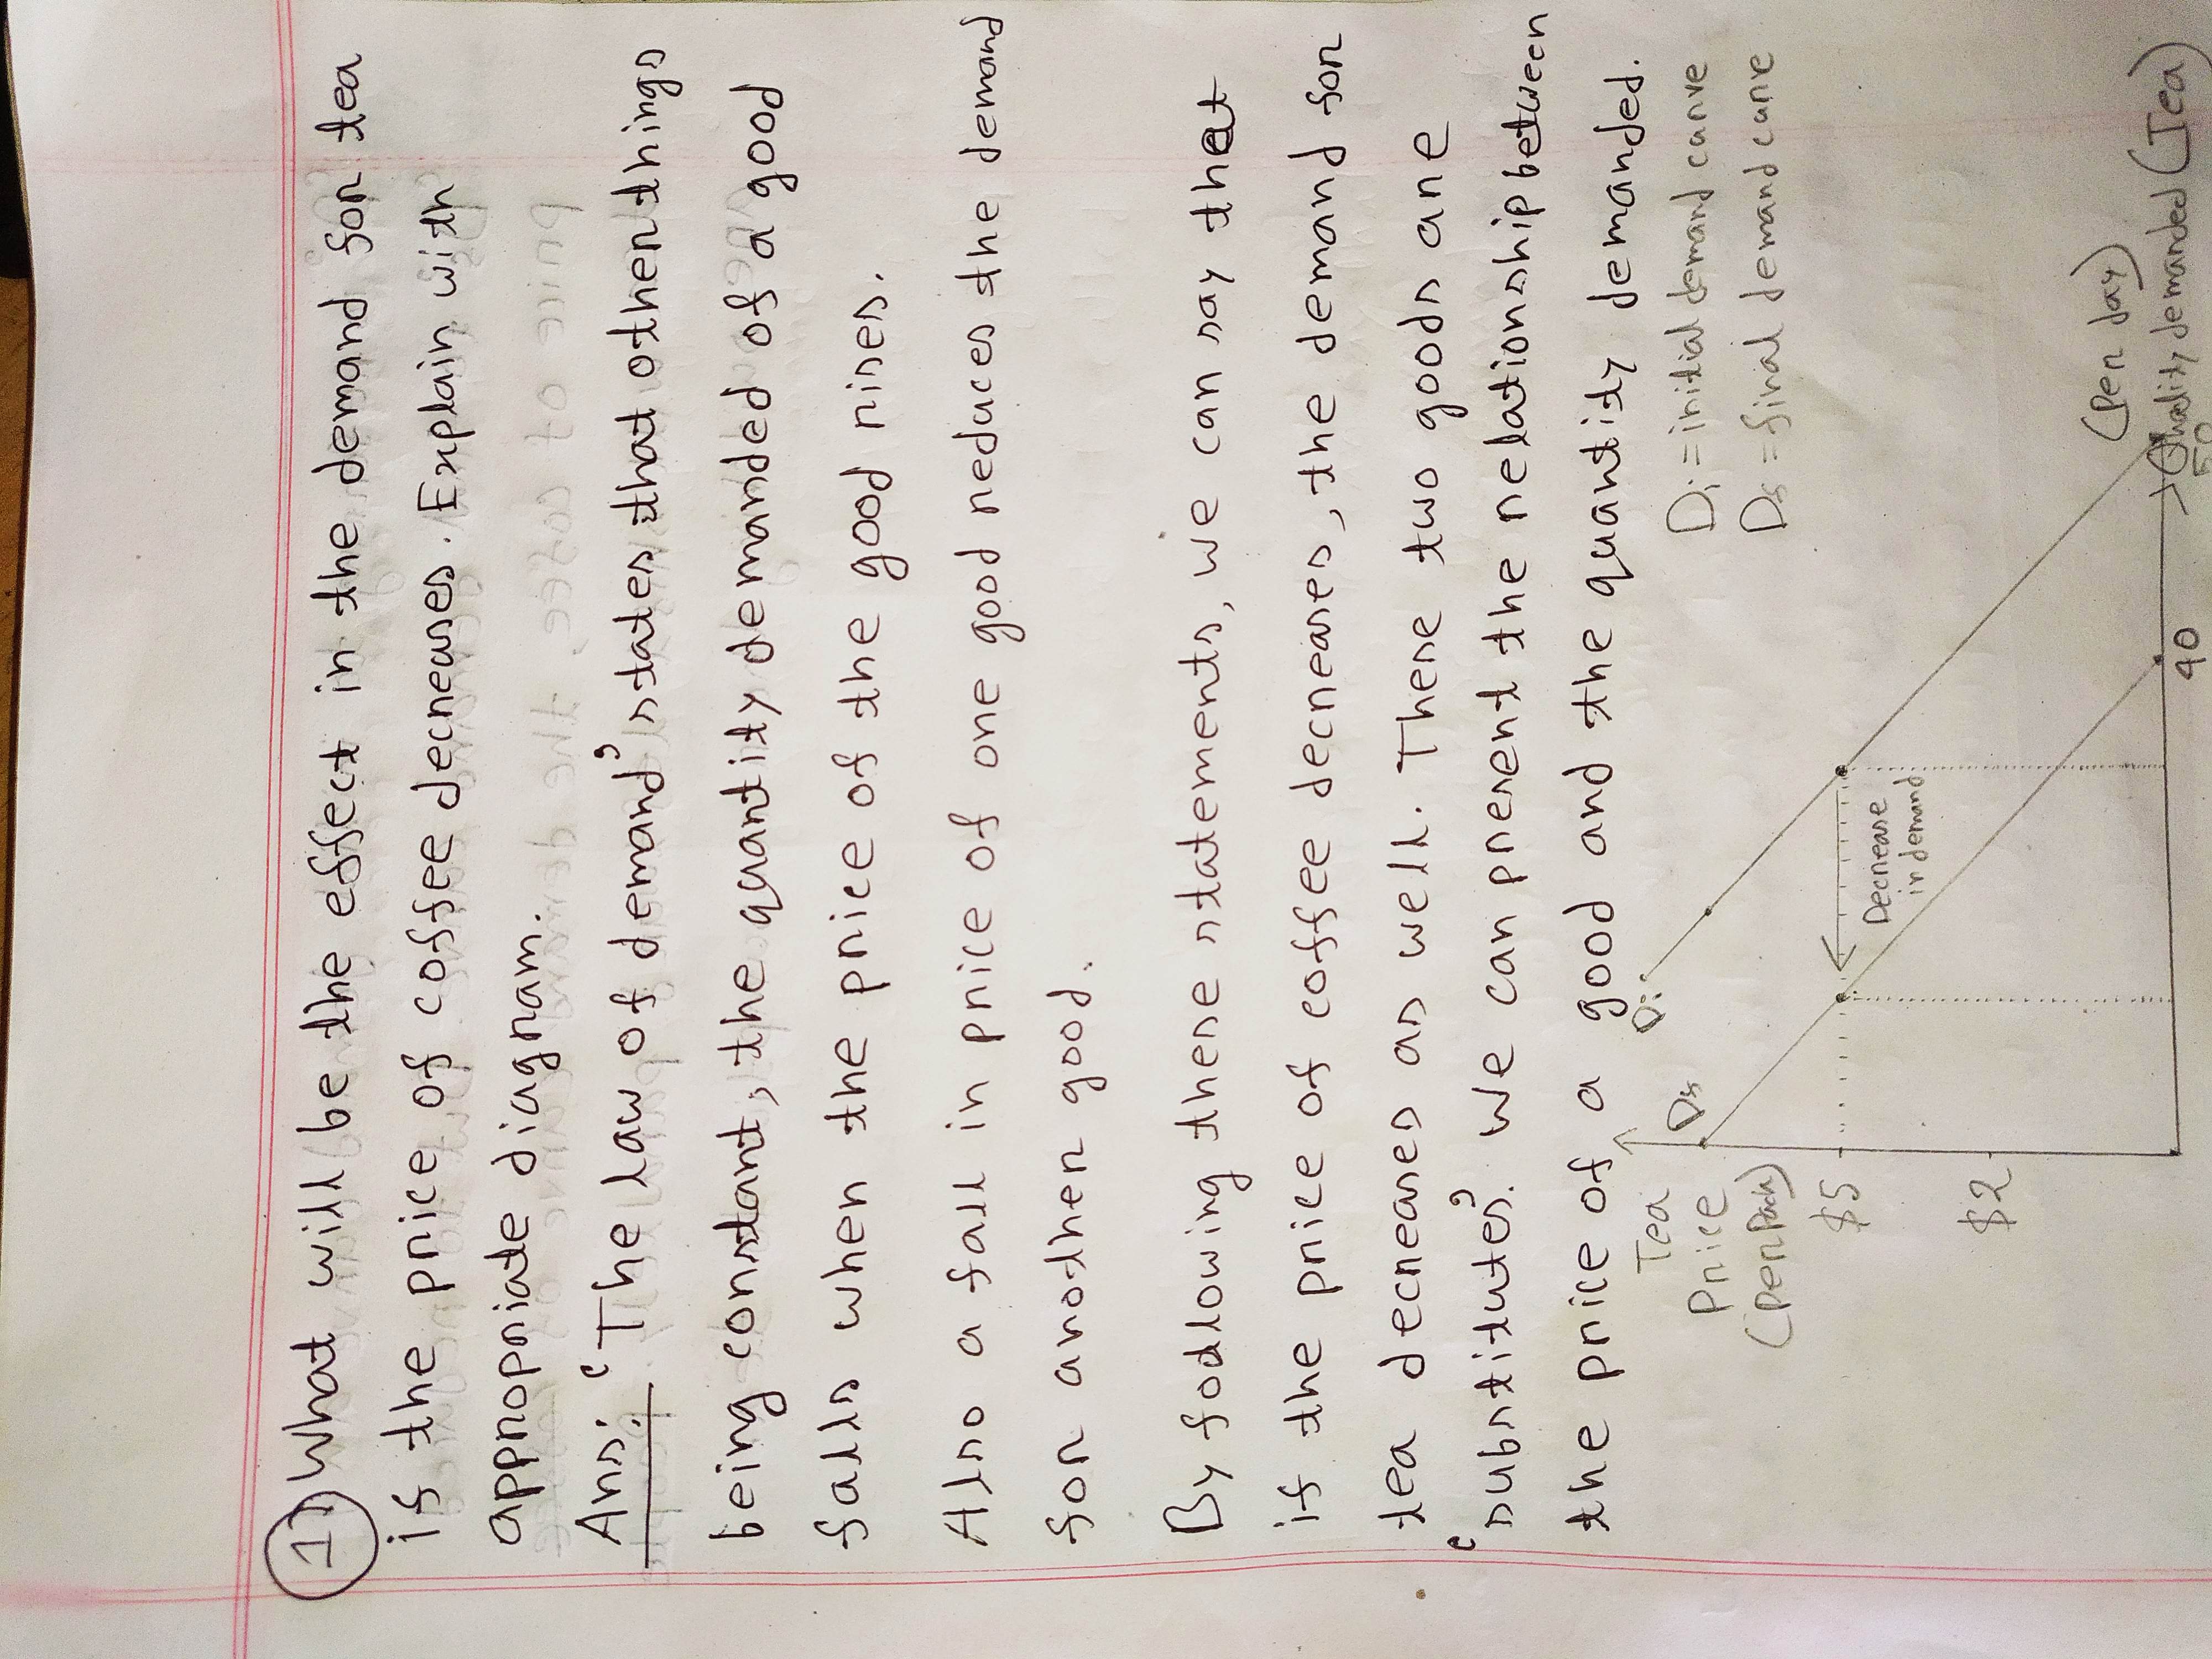 1) What will be the effect in the demand for tea
if the price of coffee decreases. Explain with
appropriate diagram.
Ans: 'The law of demand' states that other things
being constant, the quantity demanded of a good
falls when the price of the good rises.
Also a fall in price of one good reduces the demand
for another good.
By following these statements, we can say that
if the price of coffee decreases, the demand for
tea decreases as well. These two goods are
'substitutes'. We can present the relationship between
the price of a good and the quantity demanded.
Tea
Price
(per Pack)
Df
Di
Di = initial demand curve
Df = final demand curve
$5
Decrease
in demand
$2
(per day)
demanded (Tea)
40
50